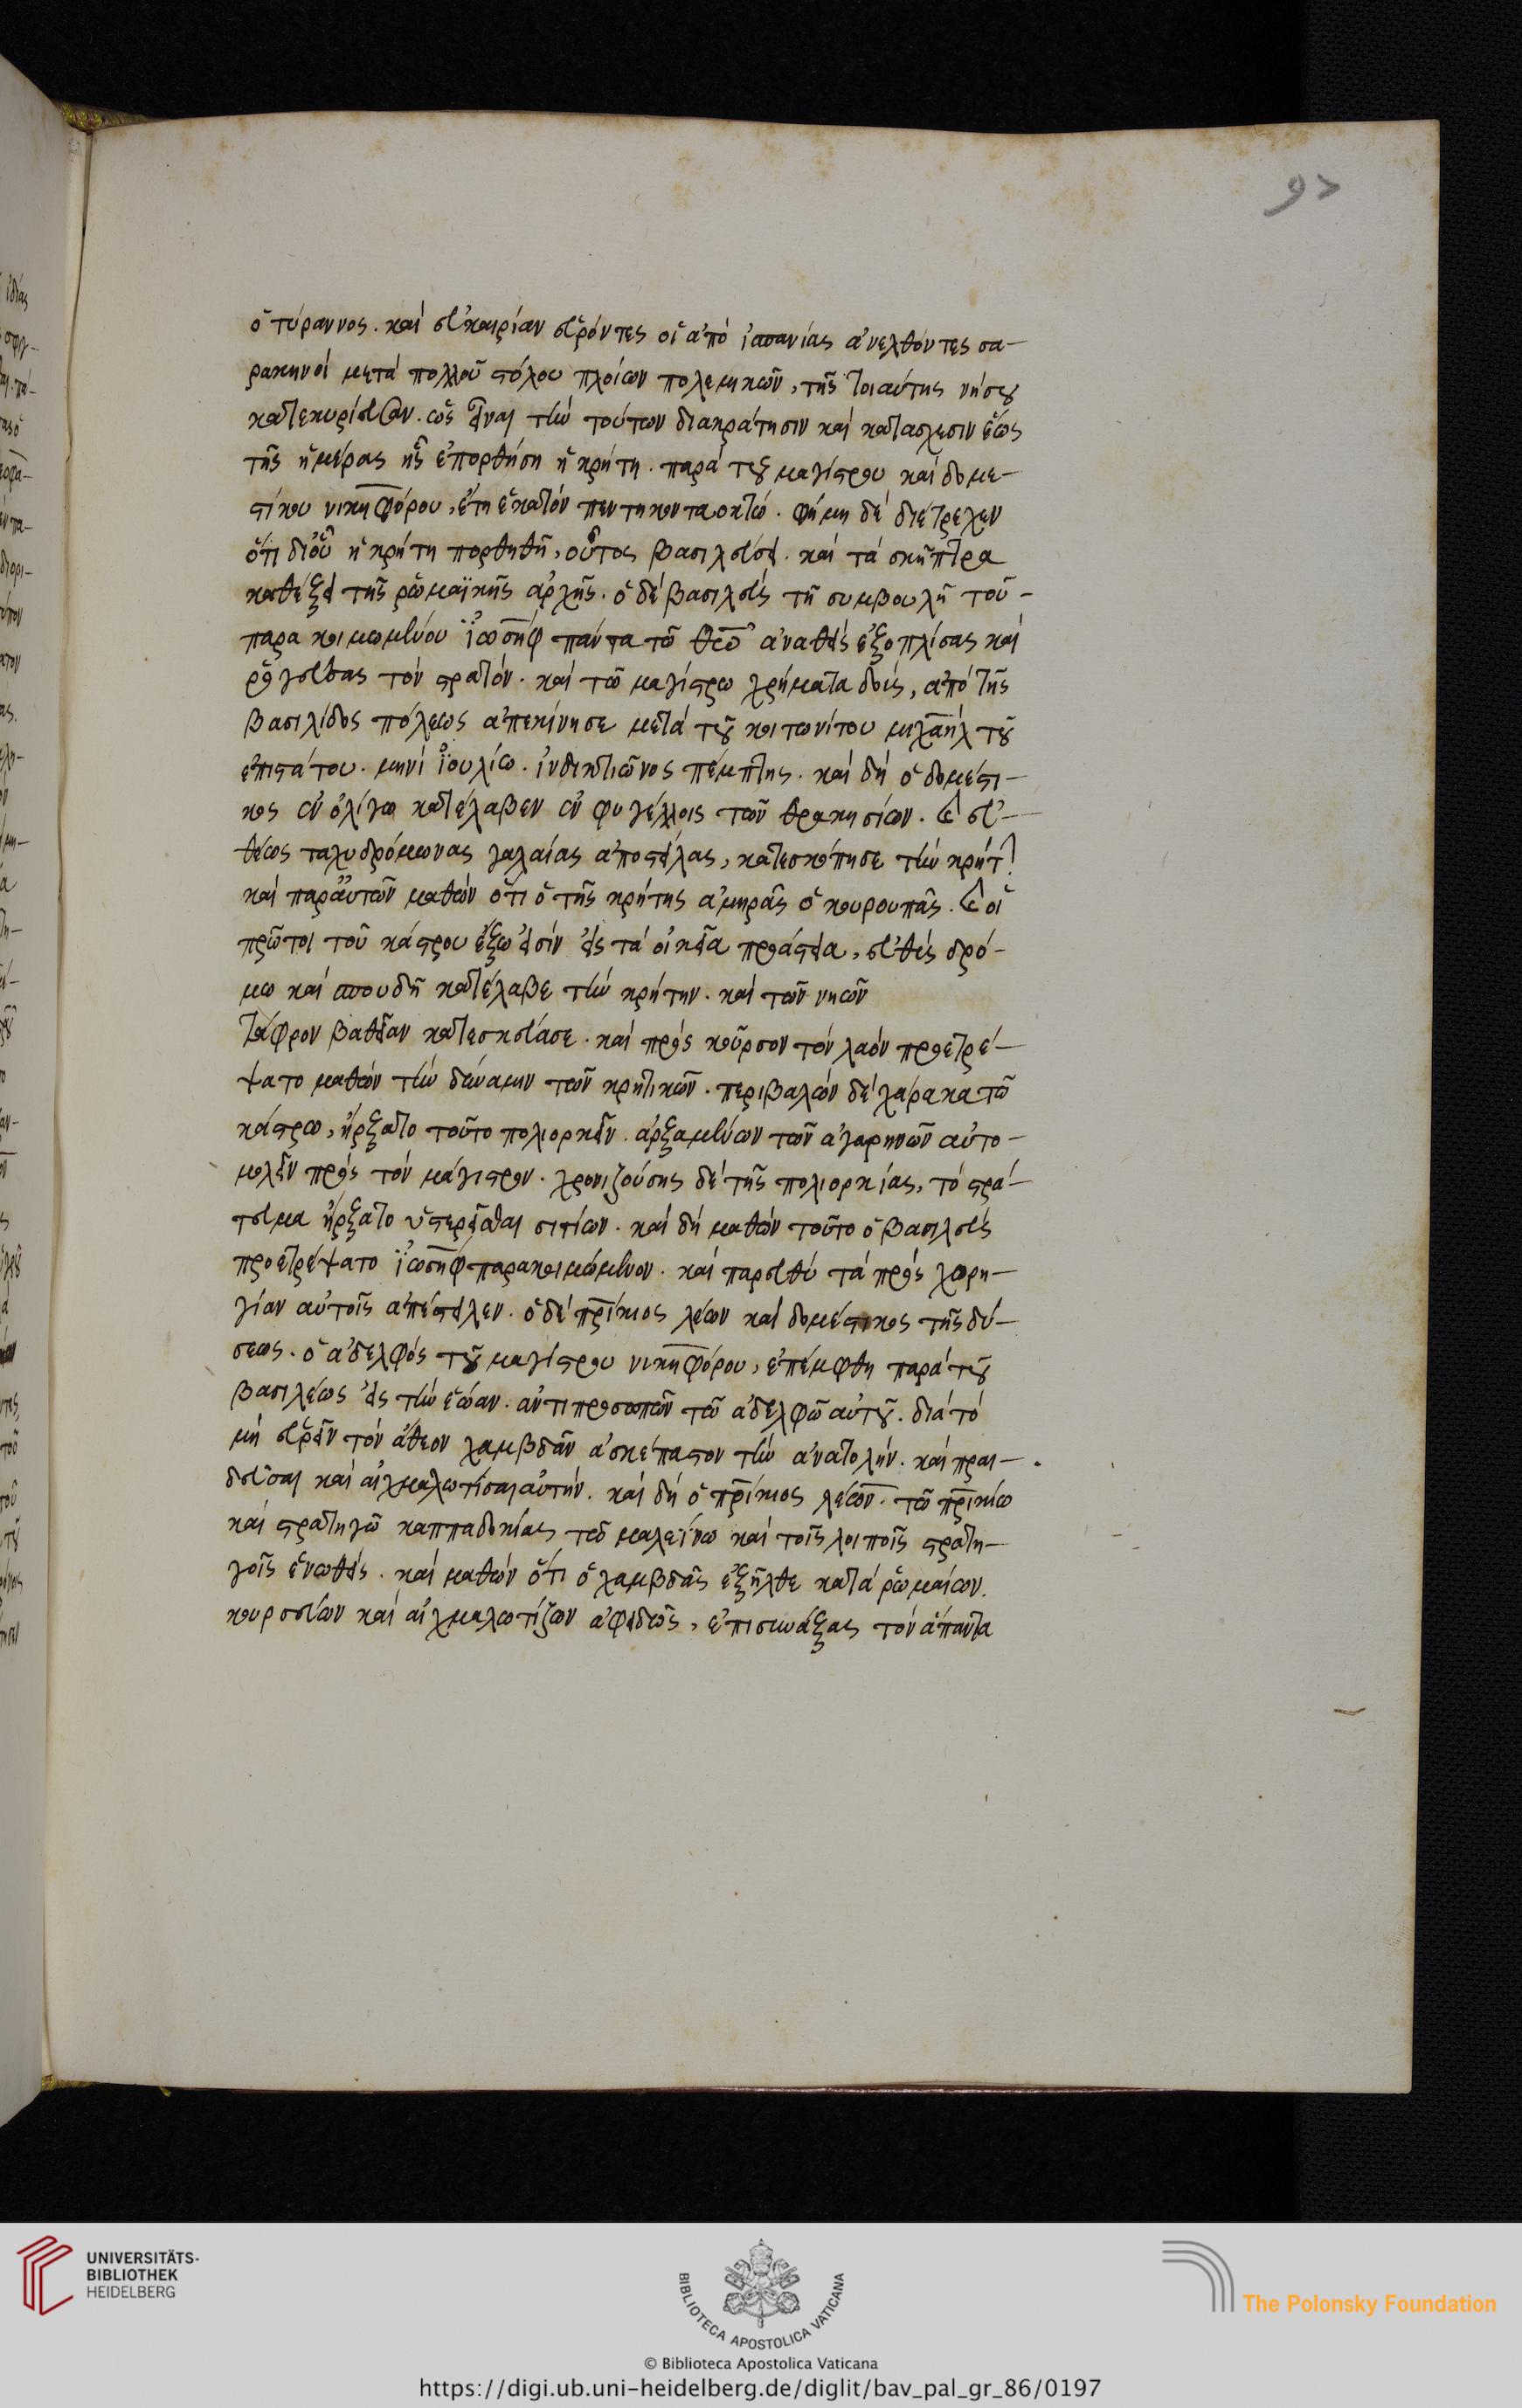 97
ὁ τύραννος. καὶ εὐκαιρίαν εὑρόντες οἱ ἀπὸ ἱσπανίας ἀνελθόντες σα-
ρακηνοὶ μετὰ πολλοῦ στόλου πλοίων πολεμικῶν, τῆς τοιαύτης νήσου
κατεκυρίευσαν. ὡς εἶναι τὴν τούτων διακράτησιν καὶ κατάσχεσιν ἕως
τῆς ἡμέρας ἧς ἐπορθήθη ἡ κρήτη. παρὰ τοῦ μαγίστρου καὶ δομε-
στίκου νικηφόρου, ἔτη ἑκατὸν πεντηκονταοκτώ. φήμη δὲ διέτρεχεν
ὅτι δι' οὗ ἡ κρήτη πορθηθῆ, οὗτος βασιλεύσει. καὶ τὰ σκῆπτρα
καθέξει τῆς ῥωμαϊκῆς ἀρχῆς. ὁ δὲ βασιλεὺς τῆ συμβουλῆ τοῦ-
παρακοιμωμένου ἰωσὴφ πάντα τῶ θεῶ ἀναθεὶς ἐξοπλίσας καὶ
ῥογεύσας τὸν στρατόν. καὶ τῶ μαγίστρω χρήματα δοὺς, ἀπὸ τῆς
βασιλίδος πόλεως ἀπεκίνησε μετὰ τοῦ κοιτωνίτου μιχαὴλ τοῦ
ἐπιστάτου. μηνὶ ἰουλίω. ἰνδικτιῶνος πέμπτης. καὶ δὴ ὁ δομέστι-
κος ἐν ὀλίγω κατέλαβεν ἐν φυγέλλοις τῶν θρακησίων. καὶ εὐ-
θέως ταχυδρόμωνας γαλαίας ἀποστείλας, κατεσκόπησε τὴν κρήτ
καὶ παρ' αὐτῶν μαθὼν ὅτι ὁ τῆς κρήτης ἀμηρᾶς ὁ κουρουπᾶς. καὶ οἱ
πρῶτοι τοῦ κάστρου ἔξω εἰσὶν εἰς τὰ οἰκεῖα προάστεια, εὐθὺς δρό-
μω καὶ σπουδῆ κατέλαβε τὴν κρήτην. καὶ τῶν νηῶν
τάφρον βαθεῖαν κατεσκεύασε. καὶ πρὸς κοῦρσον τὸν λαὸν προετρέ-
ψατο μαθὼν τὴν δύναμιν τῶν κρητικῶν. περιβαλὼν δὲ χάρακα τῶ
κάστρω, ἤρξατο τοῦτο πολιορκεῖν. ἀρξαμένων τῶν ἀγαρηνῶν αὐτο-
μολεῖν πρὸς τὸν μάγιστρον. χρονιζούσης δὲ τῆς πολιορκίας, τὸ στρά-
τευμα ἤρξατο ὑστερεῖσθαι σιτίων. καὶ δὴ μαθὼν τοῦτο ὁ βασιλεὺς
προετρέψατο ἰωσὴφ παρακοιμώμενον. καὶ παρευθὺ τὰ πρὸς χορη-
γίαν αὐτοῖς ἀπέστειλεν. ὁ δὲ πρίκιος λέων καὶ δομέστικος τῆς δύ-
σεως. ὁ ἀδελφὸς τοῦ μαγίστρου νικηφόρου, ἐπέμφθη παρὰ τοῦ
βασιλέως εἰς τὴν ἑώαν. ἀντιπροσωπῶν τῶ ἀδελφῶ αὐτοῦ. διὰ τὸ
μὴ εὑρεῖν τὸν ἄθεον χαμβδᾶν ἀσκέπαστον τὴν ἀνατολήν. καὶ πραι-
δεῦσαι καὶ αἰχμαλωτίσαι αὐτήν. καὶ δὴ ὁ πρίκιος λέων. τῶ πρικίω
καὶ στρατηγῶ καππαδοκίας τῶ μαλεΐνω καὶ τοῖς λοιποῖς στρατη-
γοῖς ἑνωθεὶς. καὶ μαθὼν ὅτι ὁ χαμβδᾶς ἐξῆλθε κατὰ ῥωμαίων.
κουρσεύων καὶ αἰχμαλωτίζων ἀφειδῶς, ἐπισυνάξας τὸν ἅπαντα
UNIVERSITÄTS-
BIBLIOTHEK
HEIDELBERG
BIBLIOTECA APOSTOLICA VATICANA
The Polonsky Foundation
© Biblioteca Apostolica Vaticana
https://digi.ub.uni-heidelberg.de/diglit/bav_pal_gr_86/0197